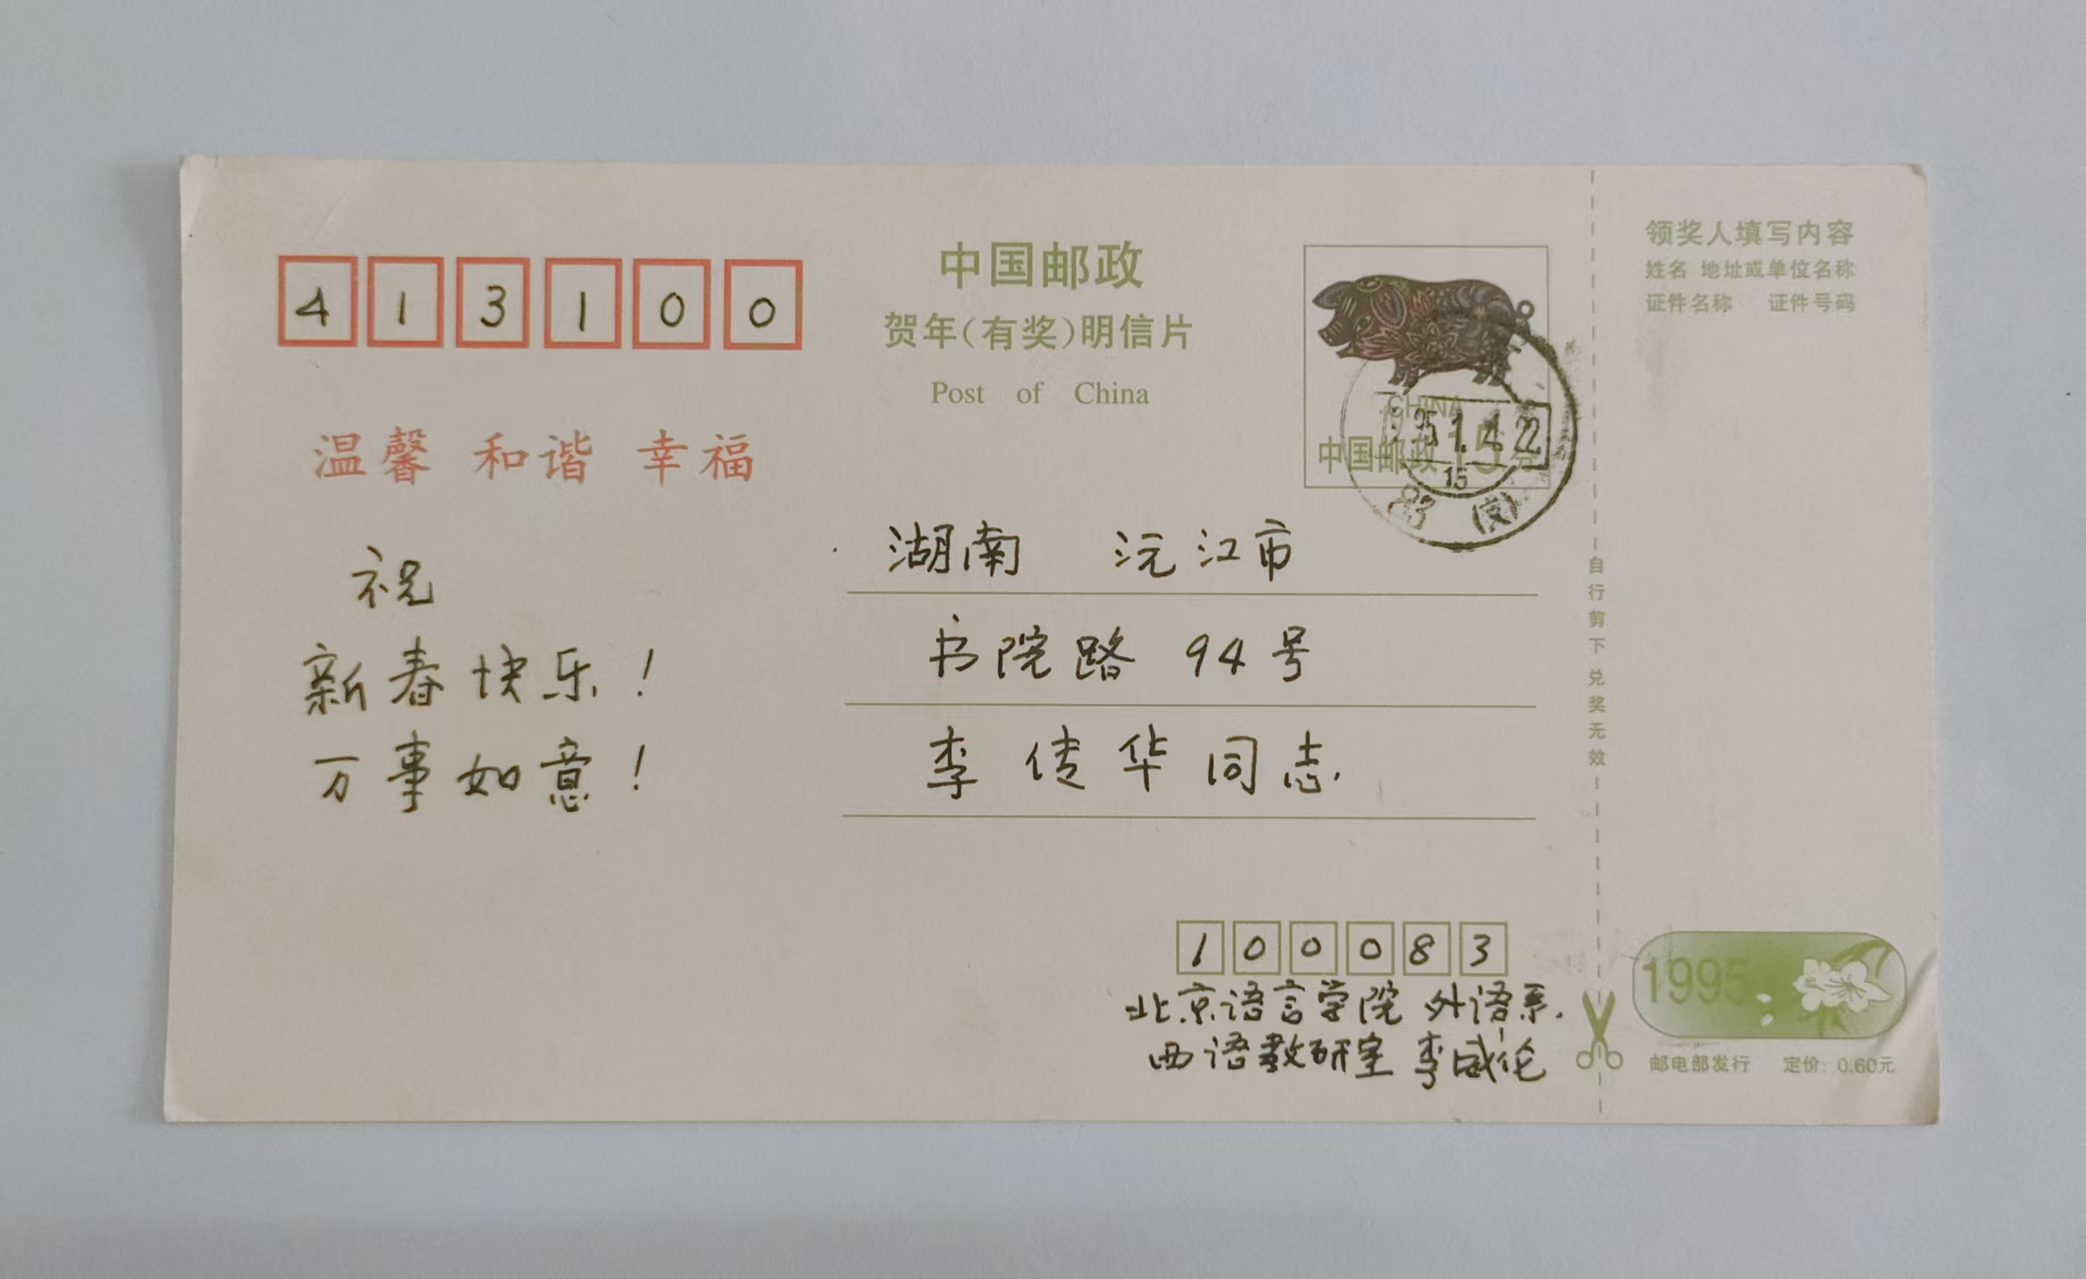 413100
中国邮政
贺年(有奖)明信片
Post of China
CHINA
中国邮政
95.1.4.22
15
83 (京)
温馨 和谐 幸福
祝
新春快乐!
万事如意!
湖南 沅江市
书院路 94号
李传华同志.
100083
北京语言学院 外语系.
西语教研室 李威伦
领奖人填写内容
姓名 地址或单位名称
证件名称 证件号码
自行剪下兑奖无效
1995
邮电部发行 定价: 0.60元